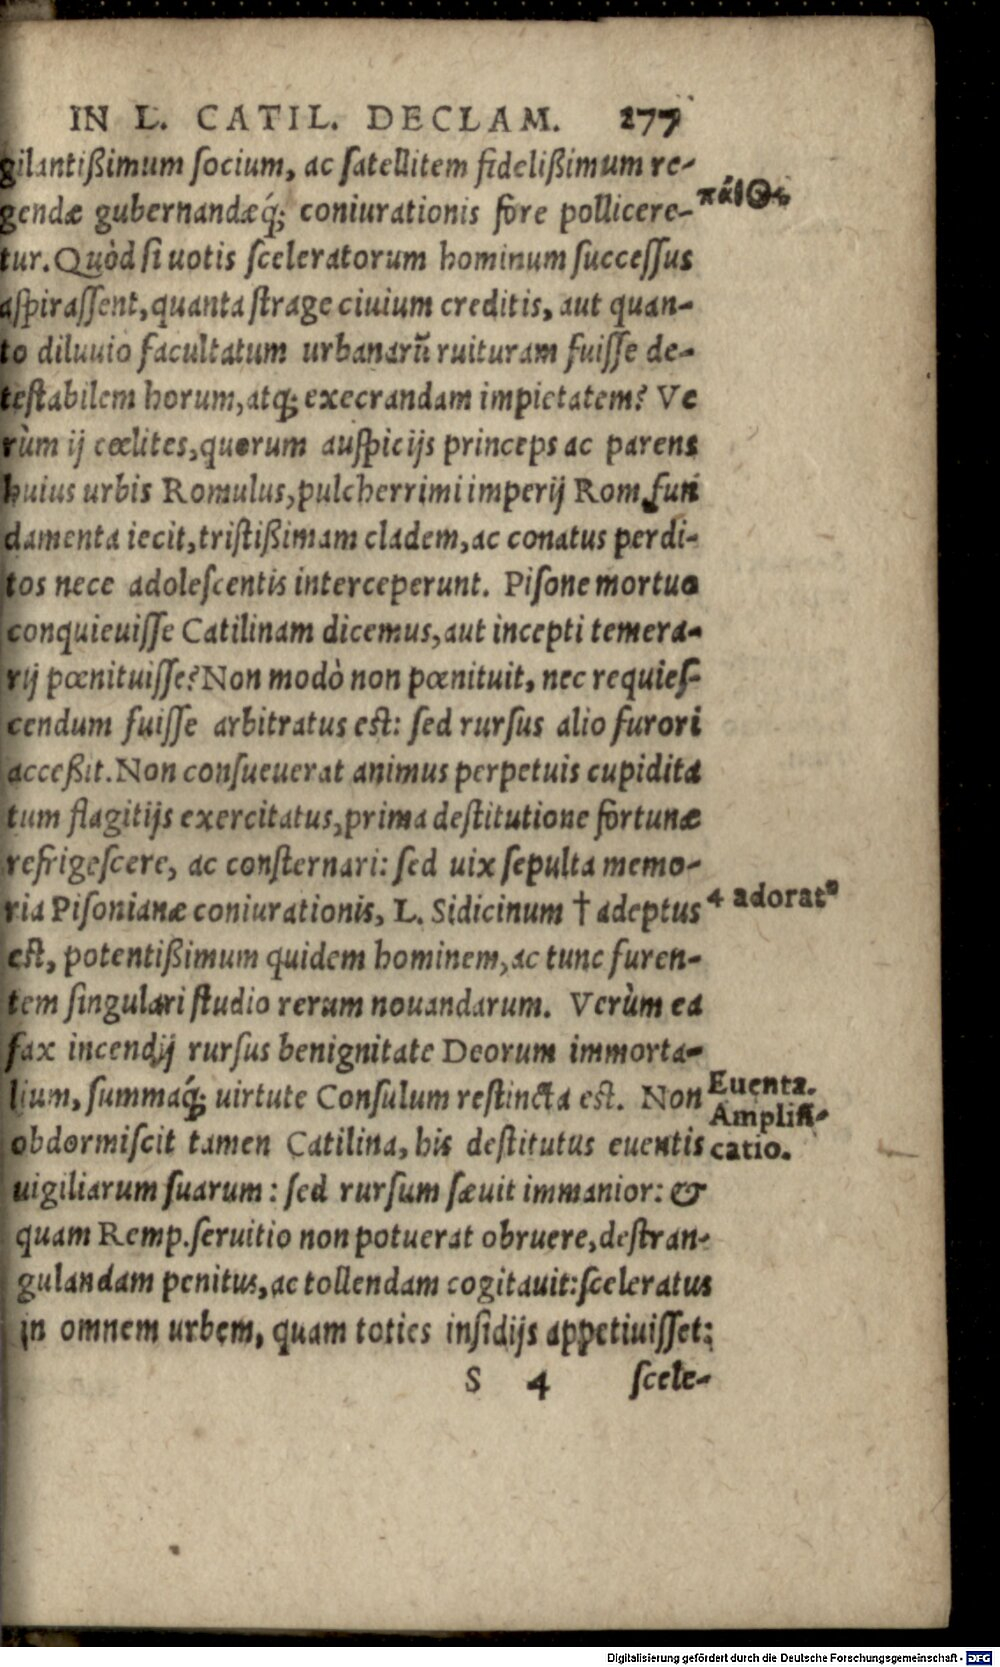 IN L. CATIL. DECLAM. 277
gilantißimum socium, ac satellitem fidelißimum re-
gendæ gubernandæq́; coniurationis fore pollicere-
tur. Quòd si uotis sceleratorum hominum successus
aspirassent, quanta strage ciuium creditis, aut quan-
to diluuio facultatum urbanarũ ruituram fuisse de-
testabilem horum, atq; execrandam impietatem? Ve
rùm ij cœlites, quorum auspicijs princeps ac parens
huius urbis Romulus, pulcherrimi imperij Rom. fun
damenta iecit, tristißimam cladem, ac conatus perdi-
tos nece adolescentis interceperunt. Pisone mortuo
conquieuisse Catilinam dicemus, aut incepti temera-
rij pœnituisse? Non modò non pœnituit, nec requies-
cendum fuisse arbitratus est: sed rursus alio furori
acceßit. Non consueuerat animus perpetuis cupidita
tum flagitijs exercitatus, prima destitutione fortunæ
refrigescere, ac consternari: sed uix sepulta memo-
ria Pisonianæ coniurationis, L. Sidicinum † adeptus
4 adorat⁹
est, potentißimum quidem hominem, ac tunc furen-
tem singulari studio rerum nouandarum. Verùm ea
fax incendij rursus benignitate Deorum immorta-
lium, summaq́; uirtute Consulum restincta est. Non
Euenta.
Amplifi-
catio.
obdormiscit tamen Catilina, bis destitutus euentis
uigiliarum suarum: sed rursum sæuit immanior: &
quam Remp. seruitio non potuerat obruere, destran-
gulandam penitus, ac tollendam cogitauit: sceleratus
in omnem urbem, quam toties insidijs appetiuisset:
S 4 scele-
Digitalisierung gefördert durch die Deutsche Forschungsgemeinschaft - DFG